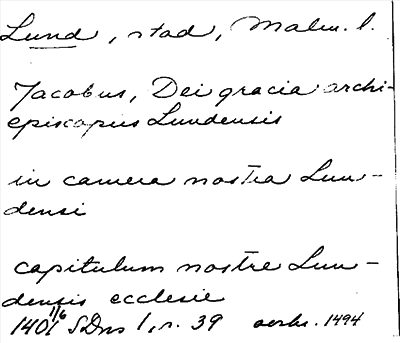 Lund, stad, Malm. l.
Jacobus, Dei gracia archi-
episcopus Lundensis
in camera nostra Lun-
densi
capitulum nostre Lun-
densis ecclesie
1401 1/6 SDns 1, s. 39 avskr. 1494